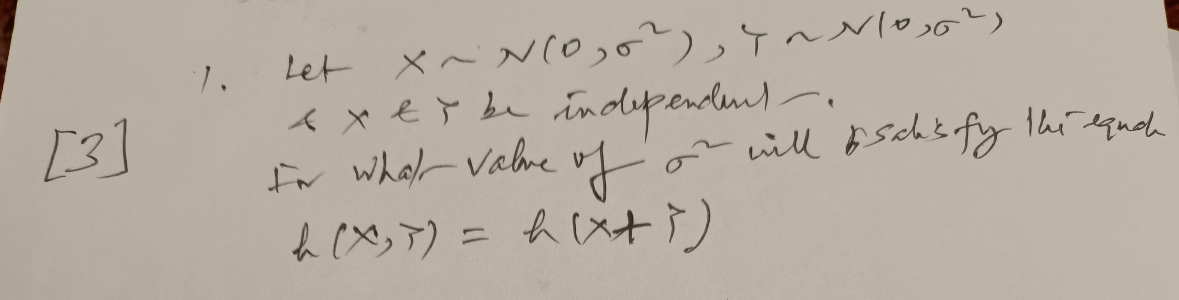 1. Let X ~ N(0, σ²), Y ~ N(0, σ²)
& X & Y be independent.
[3]
For what value of σ² will satisfy the
h(X, Y) = h(X + Y)